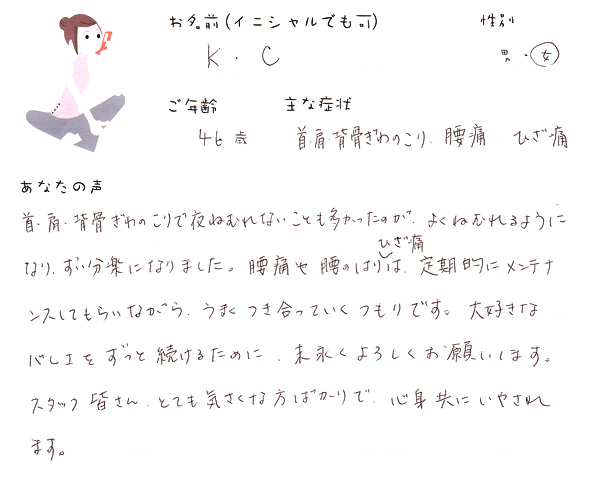 お名前(イニシャルでも可)
性別
K.C
男・女
ご年齢
主な症状
46歳
首・肩・背骨ぎわのこり、腰痛、ひざ痛
あなたの声
首・肩・背骨ぎわのこりで夜ねむれないことも多かったのが、よくねむれるように
なり、ずい分楽になりました。腰痛や腰のはり、ひざ痛は、定期的にメンテナ
ンスしてもらいながら、うまくつき合っていくつもりです。大好きな
バレエをずっと続けるために、末永くよろしくお願いします。
スタッフ皆さん、とても気さくな方ばかりで、心身共にいやされ
ます。